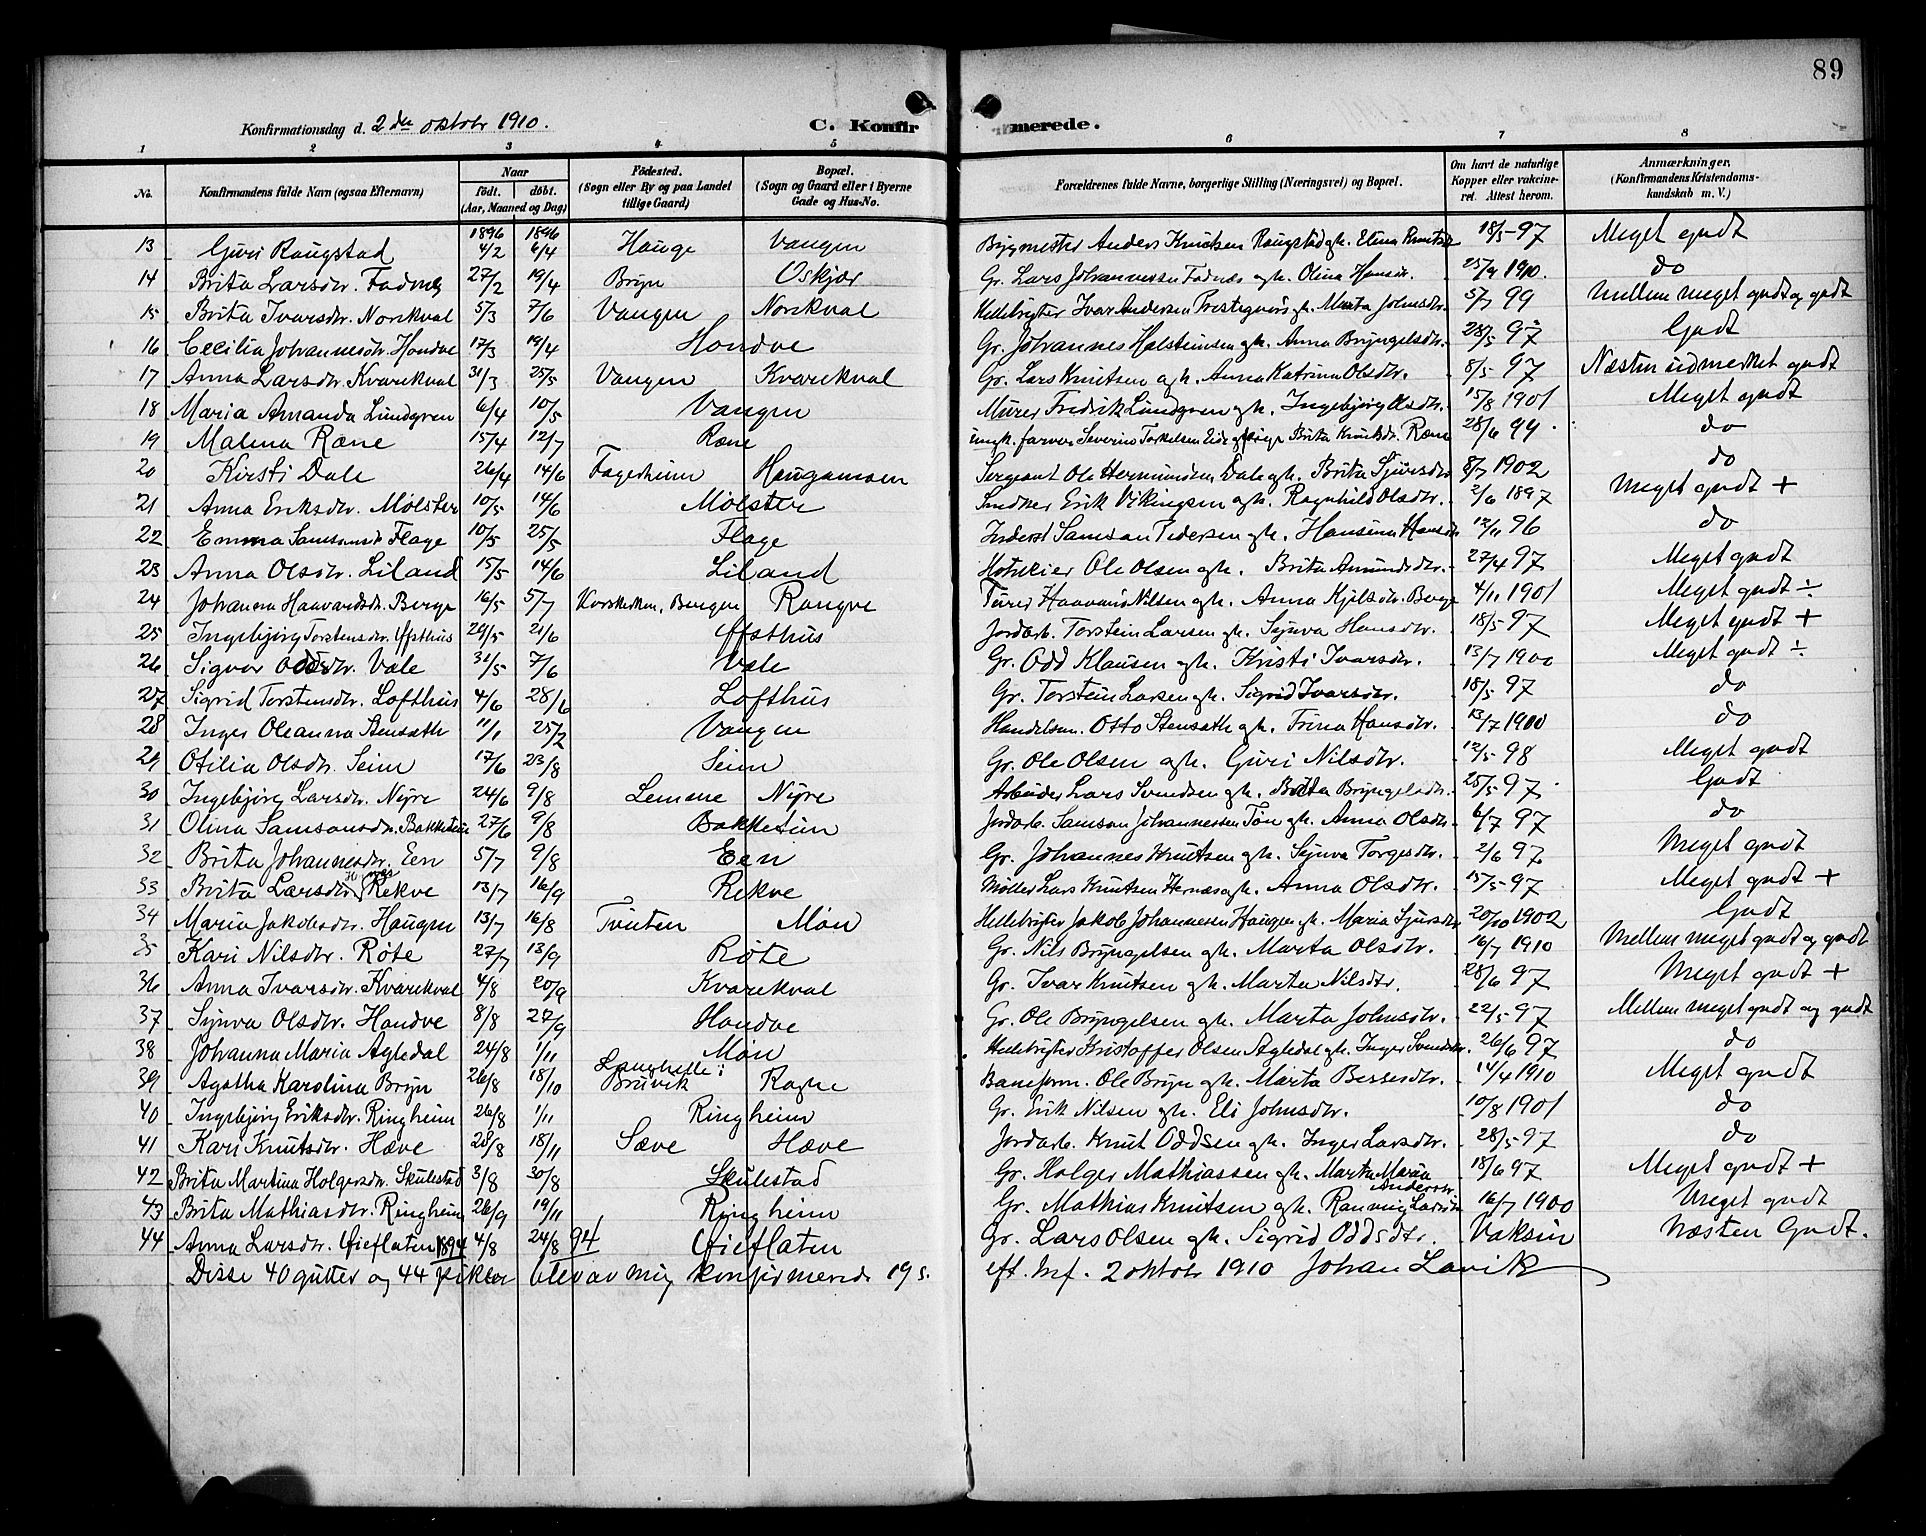 89
Konfirmationsdag d. 2den oktobr 1910. C. Konfirmerede.
1 2 3 4 5 6 7 8
No. Konfirmandens fulde Navn (ogsaa Efternavn) Naar født. døbt. (Aar, Maaned og Dag) Fødested. (Sogn eller By og paa Landet tillige Gaard) Bopæl. (Sogn og Gaard eller i Byerne Gade og Hus-No. Forældrenes fulde Navne, borgerlige Stilling (Næringsvei) og Bopæl. Om havt de naturlige Kopper eller vakcineret. Attest herom. Anmærkninger. (Konfirmandens Kristendomskundskab m. V.)
1896 1896
13 Guri Raugstad 4/2 6/4 Hauge Vangen Bygmester Anders Knutsen Raugstad gh. Elina Knutsdr 18/5-97 Meget godt
14 Brita Larsdtr. Fadnes 27/2 19/4 Bryn Oskjær Gr. Lars Johannessen Fadnes gh. Olina Hansdr. 25/9 1910. do
15 Brita Ivarsdtr. Norekval 5/3 7/6 Vangen Norekval Ivar Andersen gh. Marta Johnsdtr. 5/7 99 Mellem meget godt og godt
16 Cecilia Johannesdtr. Hondve 17/3 19/4 Hondve Gr. Johannes Holsteinsen gh. Anna Bryngelsdtr. 28/5 97 Godt
17 Anna Larsdtr. Kvarekval 31/3 25/5 Vangen Kvarekval Gr. Lars Knutsen gh. Anna Katrina Olsdtr. 8/5-97 Næsten udmerket godt
18 Maria Amanda Lundgren 6/4 10/5 Vangen Murer Fredrik Lundgren gh. Ingebjørg Olsdtr. 15/8 1901 Meget godt
19 Malena Ræne 15/4 12/7 Ræne ungk. farver Severin Torkelsen Eide og pige Brita Knutsdr. Ræne 28/6 99. do
20 Kirsti Dale 26/4 14/6 Fagerheim Haugamoen Sergeant Ole Hermundsen Dale gh. Brita Sjursdtr 8/7 1902 do
21 Anna Eriksdtr. Mølster 10/5 14/6 Mølster Snedker Erik Vikingsen gh. Ragnhild Olsdtr. 2/6 1897 Meget godt +
22 Emma Samsonsdt Flage 10/5 25/5 Flage Inderst Samson Pedersen gh. Hansina Hansdtr 12/11 96 do
23 Anna Olsdtr. Liland 15/5 14/6 Liland Ole Olsen gh. Brita Amundsdtr. 27/4 97 Meget godt
24 Johanna Haavardsdtr. Berge 16/5 5/7 Korskirken, Bergen Rongve Haavard Nilsen gh. Anna Kjelsdtr. Berge 4/11 1901 Meget godt ÷
25 Ingebjørg Torstensdtr. Afsthus 29/5 21/6 Afsthus Jordarb. Torstein Larsen gh. Synva Hansdtr. 18/5-97 Meget godt +
26 Sigvor Oddsdtr. Væle 31/5 7/6 Væle Gr. Odd Klausen gh. Kristi Ivarsdtr. 13/7 1900 Meget godt ÷
27 Sigrid Torstensdtr. Lofthus 4/6 28/6 Lofthus Gr. Torstein Larsen gh. Sigrid Ivarsdtr. 18/5-97 do
28 Inger Oleanna Stensæth 11/1 25/2 Vangen Handelsm. Otto Stensæth gh. Trina Hansdtr. 13/7 1900 do
29 Otilia Olsdtr. Seim 17/6 23/8 Seim Gr. Ole Olsen gh. Guri Nilsdtr. 12/5 98 Meget godt
30 Ingebjørg Larsdtr. Nyre 24/6 9/8 Lemme Nyre Arbeider Lars Svendsen gh. Brita Bryngelsdtr. 25/5-97 Godt
31 Olina Samsonsdtr. Bakketun 27/6 9/8 Bakketun Jordarb. Samson Johannessen Tøn gh. Anna Olsdtr 6/7 97 do
32 Brita Johannesdtr. Een 5/7 9/8 Een Gr. Johannes Knutsen gh. Synva Torgersdtr. 2/6 97 Meget godt
33 Brita Larsdtr. Hernes Rekve 13/7 16/9 Rekve Møller Lars Knutsen Hernæs gh. Anna Olsdtr. 15/5-97 Meget godt +
34 Maria Jakobsdtr. Haugen 13/7 16/8 Tvinten Møn Jakob Johannessen Haugen gh. Maria Sjursdtr 20/10 1902 Godt
35 Kari Nilsdtr. Røte 27/7 13/9 Røte Gr. Nils Bryngelsen gh. Marta Olsdtr. 16/7 1910 Mellem meget godt og godt
36 Anna Ivarsdtr. Kvarekval 4/8 20/9 Kvarekval Gr. Ivar Knutsen gh. Marta Nilsdtr. 28/6 97 Meget godt +
37 Synva Olsdtr. Hondve 8/8 27/9 Hondve Gr. Ole Bryngelsen gh. Marta Johnsdtr. 22/5-97 Mellem meget godt og godt
38 Johanna Maria Agledal 24/8 1/11 Møn Kristoffer Olsen Agledal gh. Inger Svendsdtr. 26/6 97 do
39 Agatha Karolina Bryn 26/8 18/10 Langhelle i Bruvik Ragne Baneform. Ole Bryn gh. Marta Bessesdtr. 14/4 1910 Meget godt
40 Ingebjørg Eriksdtr. Ringheim 26/8 1/11 Ringheim Gr. Erik Nilsen gh. Eli Johnsdtr. 10/8 1901 do
41 Kari Knutsdtr. Hæve 28/8 18/11 Sæve Hæve Jordarb. Knut Oddsen gh. Inger Larsdtr. 28/5-97 do
42 Brita Martina Holgersdr. Skulestad 3/8 30/8 Skulestad Gr. Holger Mathiassen gh. Marta Maria Andersdtr. 18/6 97 Meget godt +
43 Brita Mathiasdtr. Ringheim 26/9 19/11 Ringheim Gr. Mathias Knutsen gh. Ranveig Larsdtr 16/7 1900 Meget godt
44 Anna Larsdtr. Gieflaten 1894 4/8 24/8 94 Gieflaten Gr. Lars Olsen gh. Sigrid Oddsdtr. Vaksin Næsten Godt.
Disse 40 gutter og 44 piker blev av mig konfirmerede 19 s. eft. tref. 2 oktobr 1910 Johan Lavik